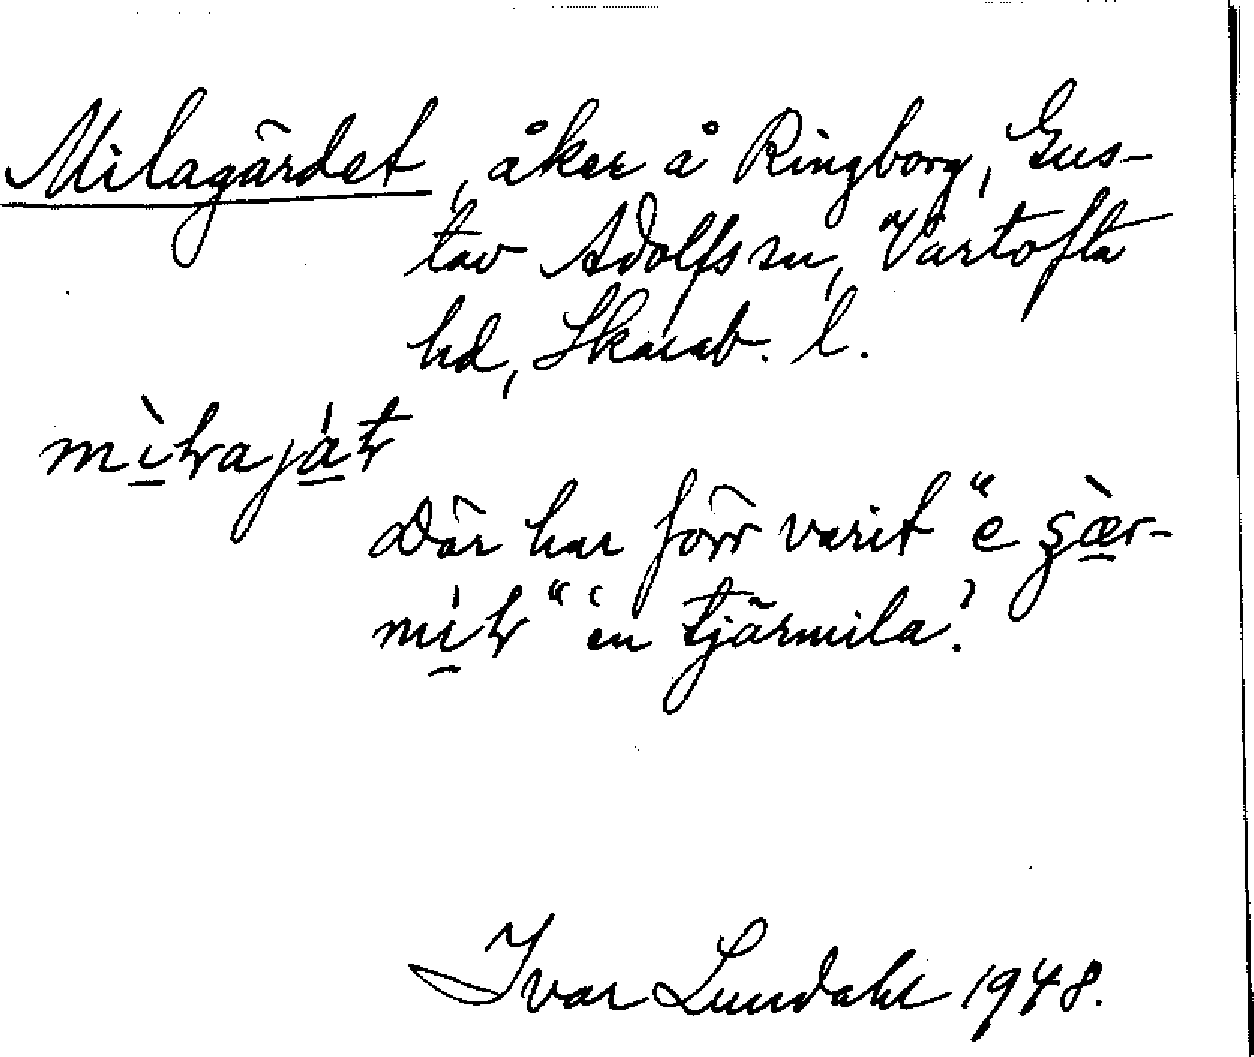 Milagärdet, åker å Ringborg, Gus-
tav Adolfs sn, Vartofta
hd, Skarab. l.
Där har förr varit "e
" 'en tjärmila'.
Ivar Lundahl 1948.